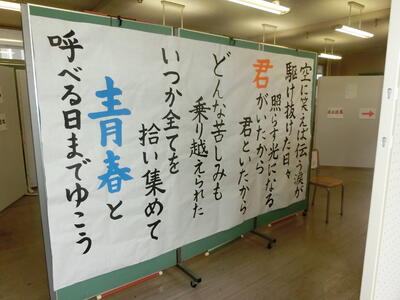 空に笑えば伝う涙が
駆け抜けた日々
照らす光になる
君がいたから
君といたから
どんな苦しみも
乗り越えられた
いつか全てを
拾い集めて
青春と
呼べる日までゆこう